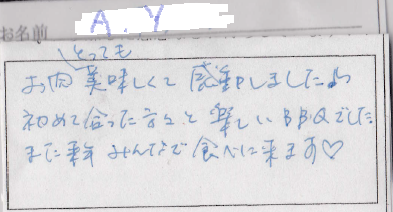 お名前 A.Y
とっても
お肉 美味しくて 感動しました
初めて会った方々と 楽しいBBQでした
また来年 みんなで 食べに来ます♡